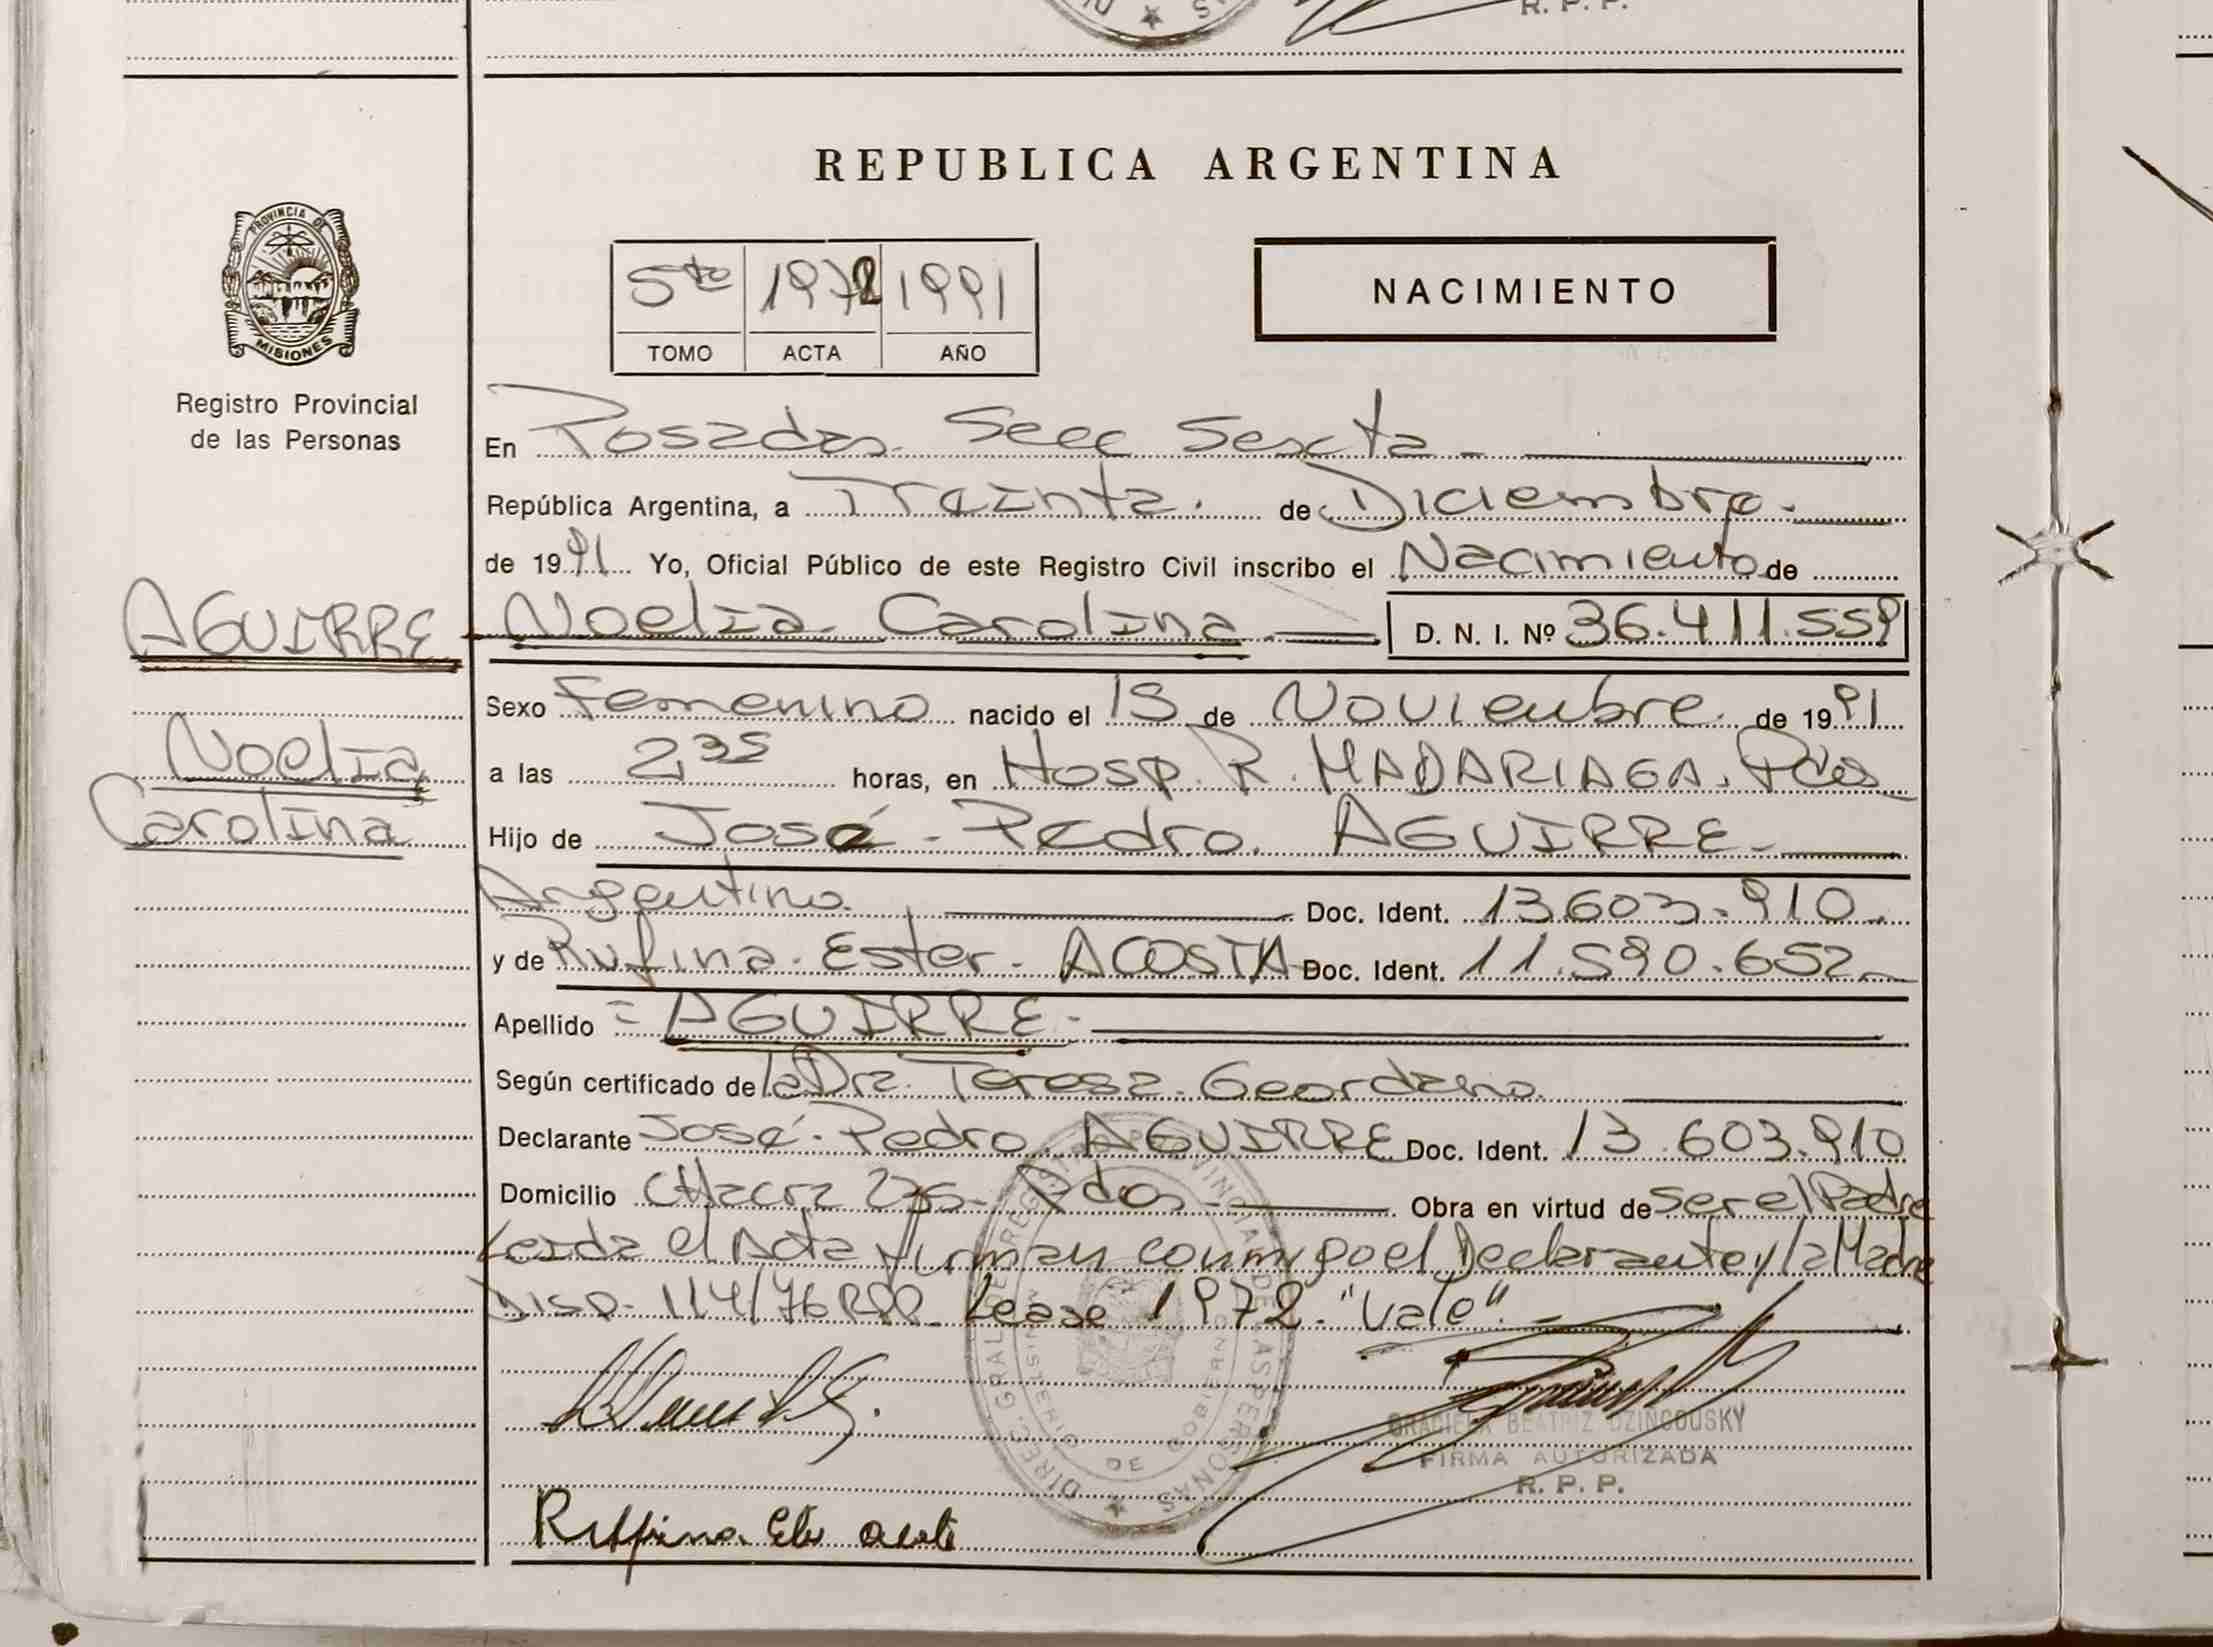 R. P. P.
REPUBLICA ARGENTINA
PROVINCIA DE
MISIONES
Registro Provincial
de las Personas
5to 1972 1991
TOMO ACTA AÑO
NACIMIENTO
En Posadas. Secc Sexta
República Argentina, a Treinta. de Diciembre.
de 1991 Yo, Oficial Público de este Registro Civil inscribo el Nacimiento de
AGUIRRE Noelia Carolina D. N. I. Nº 36.411.559
Sexo Femenino nacido el 15 de Noviembre de 1991
Noelia
a las 2,35 horas, en Hosp. R. MADARIAGA. Pdas
Carolina
Hijo de José Pedro. AGUIRRE
Argentino. Doc. Ident. 13603.910
y de Rufina Ester. ACOSTA Doc. Ident. 11.590.652
Apellido = AGUIRRE
Según certificado de la Dra. Teresa Geordano.
Declarante José Pedro AGUIRRE Doc. Ident. 13.603.910
Domicilio CHacra Pdas Obra en virtud de ser el Padre
Leida el Acta firman conmigo el Declarante y la Madre
Disp. 114/76 RPP. Lease 1972. "Vale"
DIREC. GRAL. DE REGISTRO PROVINCIAL DE LAS PERSONAS
MINISTERIO DE GOBIERNO
GRACIELA BEATRIZ DZINCOUSKY
FIRMA AUTORIZADA
R. P. P.
Ruffina